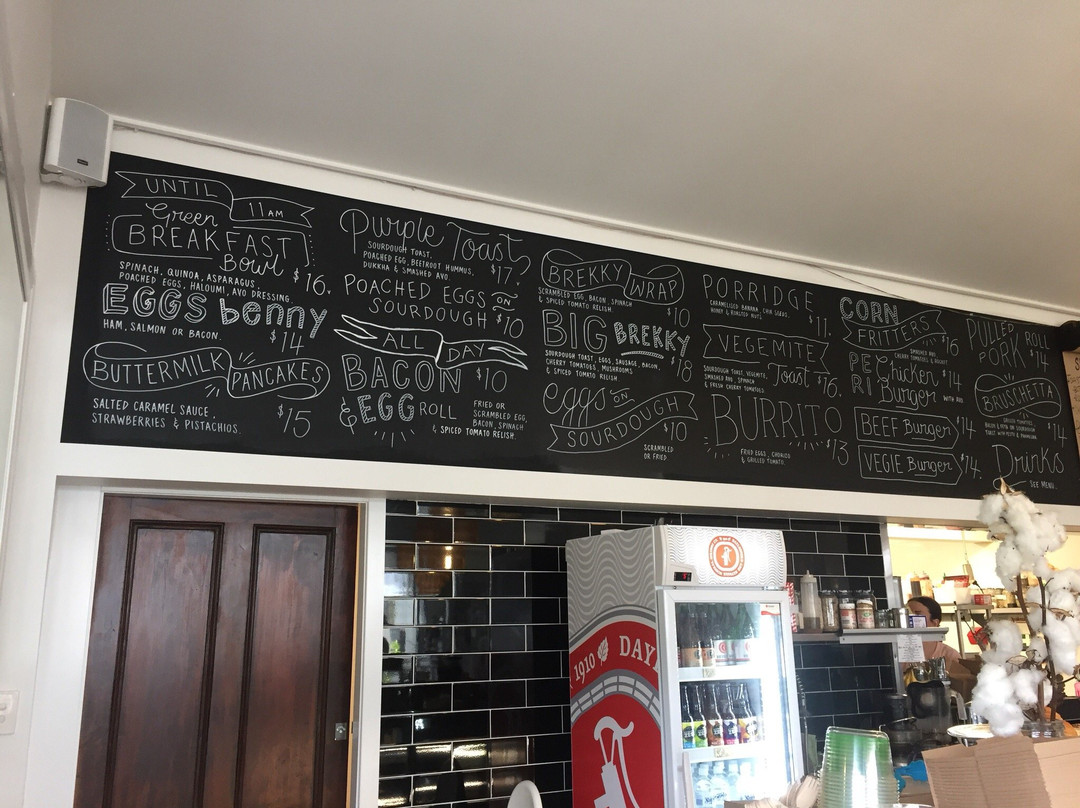 UNTIL
11 AM
Green
BREAKFAST
Bowl
$16.
SPINACH, QUINOA, ASPARAGUS,
POACHED EGGS, HALOUMI, AVO DRESSING.
EGGS benny
HAM, SALMON OR BACON.
$14
BUTTERMILK
PANCAKES
SALTED CARAMEL SAUCE,
STRAWBERRIES & PISTACHIOS.
$15
Purple Toast
SOURDOUGH TOAST,
POACHED EGG, BEETROOT HUMMUS,
DUKKHA & SMASHED AVO
$17.
POACHED EGGS ON
SOURDOUGH
$10
ALL DAY
BACON
$10
& EGG ROLL
FRIED OR
SCRAMBLED EGG,
BACON, SPINACH
& SPICED TOMATO RELISH.
BREKKY WRAP
SCRAMBLED EGG, BACON, SPINACH
& SPICED TOMATO RELISH.
$10
BIG BREKKY
SOURDOUGH TOAST, EGGS, SAUSAGE, BACON,
CHERRY TOMATOES, MUSHROOMS
& SPICED TOMATO RELISH
$18
eggs ON
SOURDOUGH
$10
SCRAMBLED
OR FRIED
PORRIDGE
CARAMELISED BANANA, CHIA SEEDS,
HONEY & ROASTED NUTS.
$11.
VEGEMITE
Toast
$16.
SOURDOUGH TOAST, VEGEMITE,
SMASHED AVO, SPINACH
& FRESH CHERRY TOMATOES
BURRITO
$13
FRIED EGGS, CHORIZO
& GRILLED TOMATO.
CORN
FRITTERS
$16
SMASHED AVO,
CHERRY TOMATOES & YOGURT
PERI
PERI
Chicken
Burger
$14
WITH AVO
BEEF Burger
$14.
VEGIE Burger
$14.
PULLED
PORK ROLL
$14
BRUSCHETTA
$14
Drinks
SEE MENU.
1910
DAY